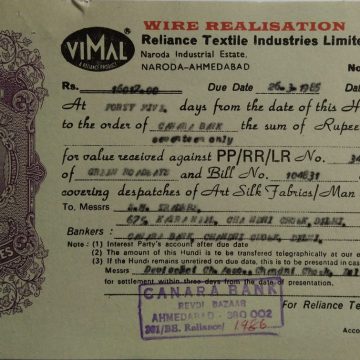 WIRE REALISATION
VIMAL
A RELIANCE PRODUCT
Reliance Textile Industries Limite
Naroda Industrial Estate,
NARODA-AHMEDABAD
No.
Rs. Due Date 26.3.1985
At FORTY FIVE days from the date of this H
to the order of CANARA BANK the sum of Rupee
seventeen only
for value received against PP/RR/LR No. 34
of and Bill No. 104831
covering despatches of Art Silk Fabrics/Man
To Messrs
CHANDNI CHOWK, DELHI.
Bankers : CANARA BANK, CHANDNI CHOWK, DELHI.
Note : (1) Interest Party's account after due date
(2) The amount of this Hundi to be transferred telegraphically at our e
(3) If the Hundi remains unretired on due date, this is to be presented in cas
Messrs Chandni Chowk,
for settlement within three days from the date of presentation.
CANARA BANK
REVDI BAZAAR
AHMEDABAD - 380 002
Reliance/ 1986
For Reliance Te
Acco
ES